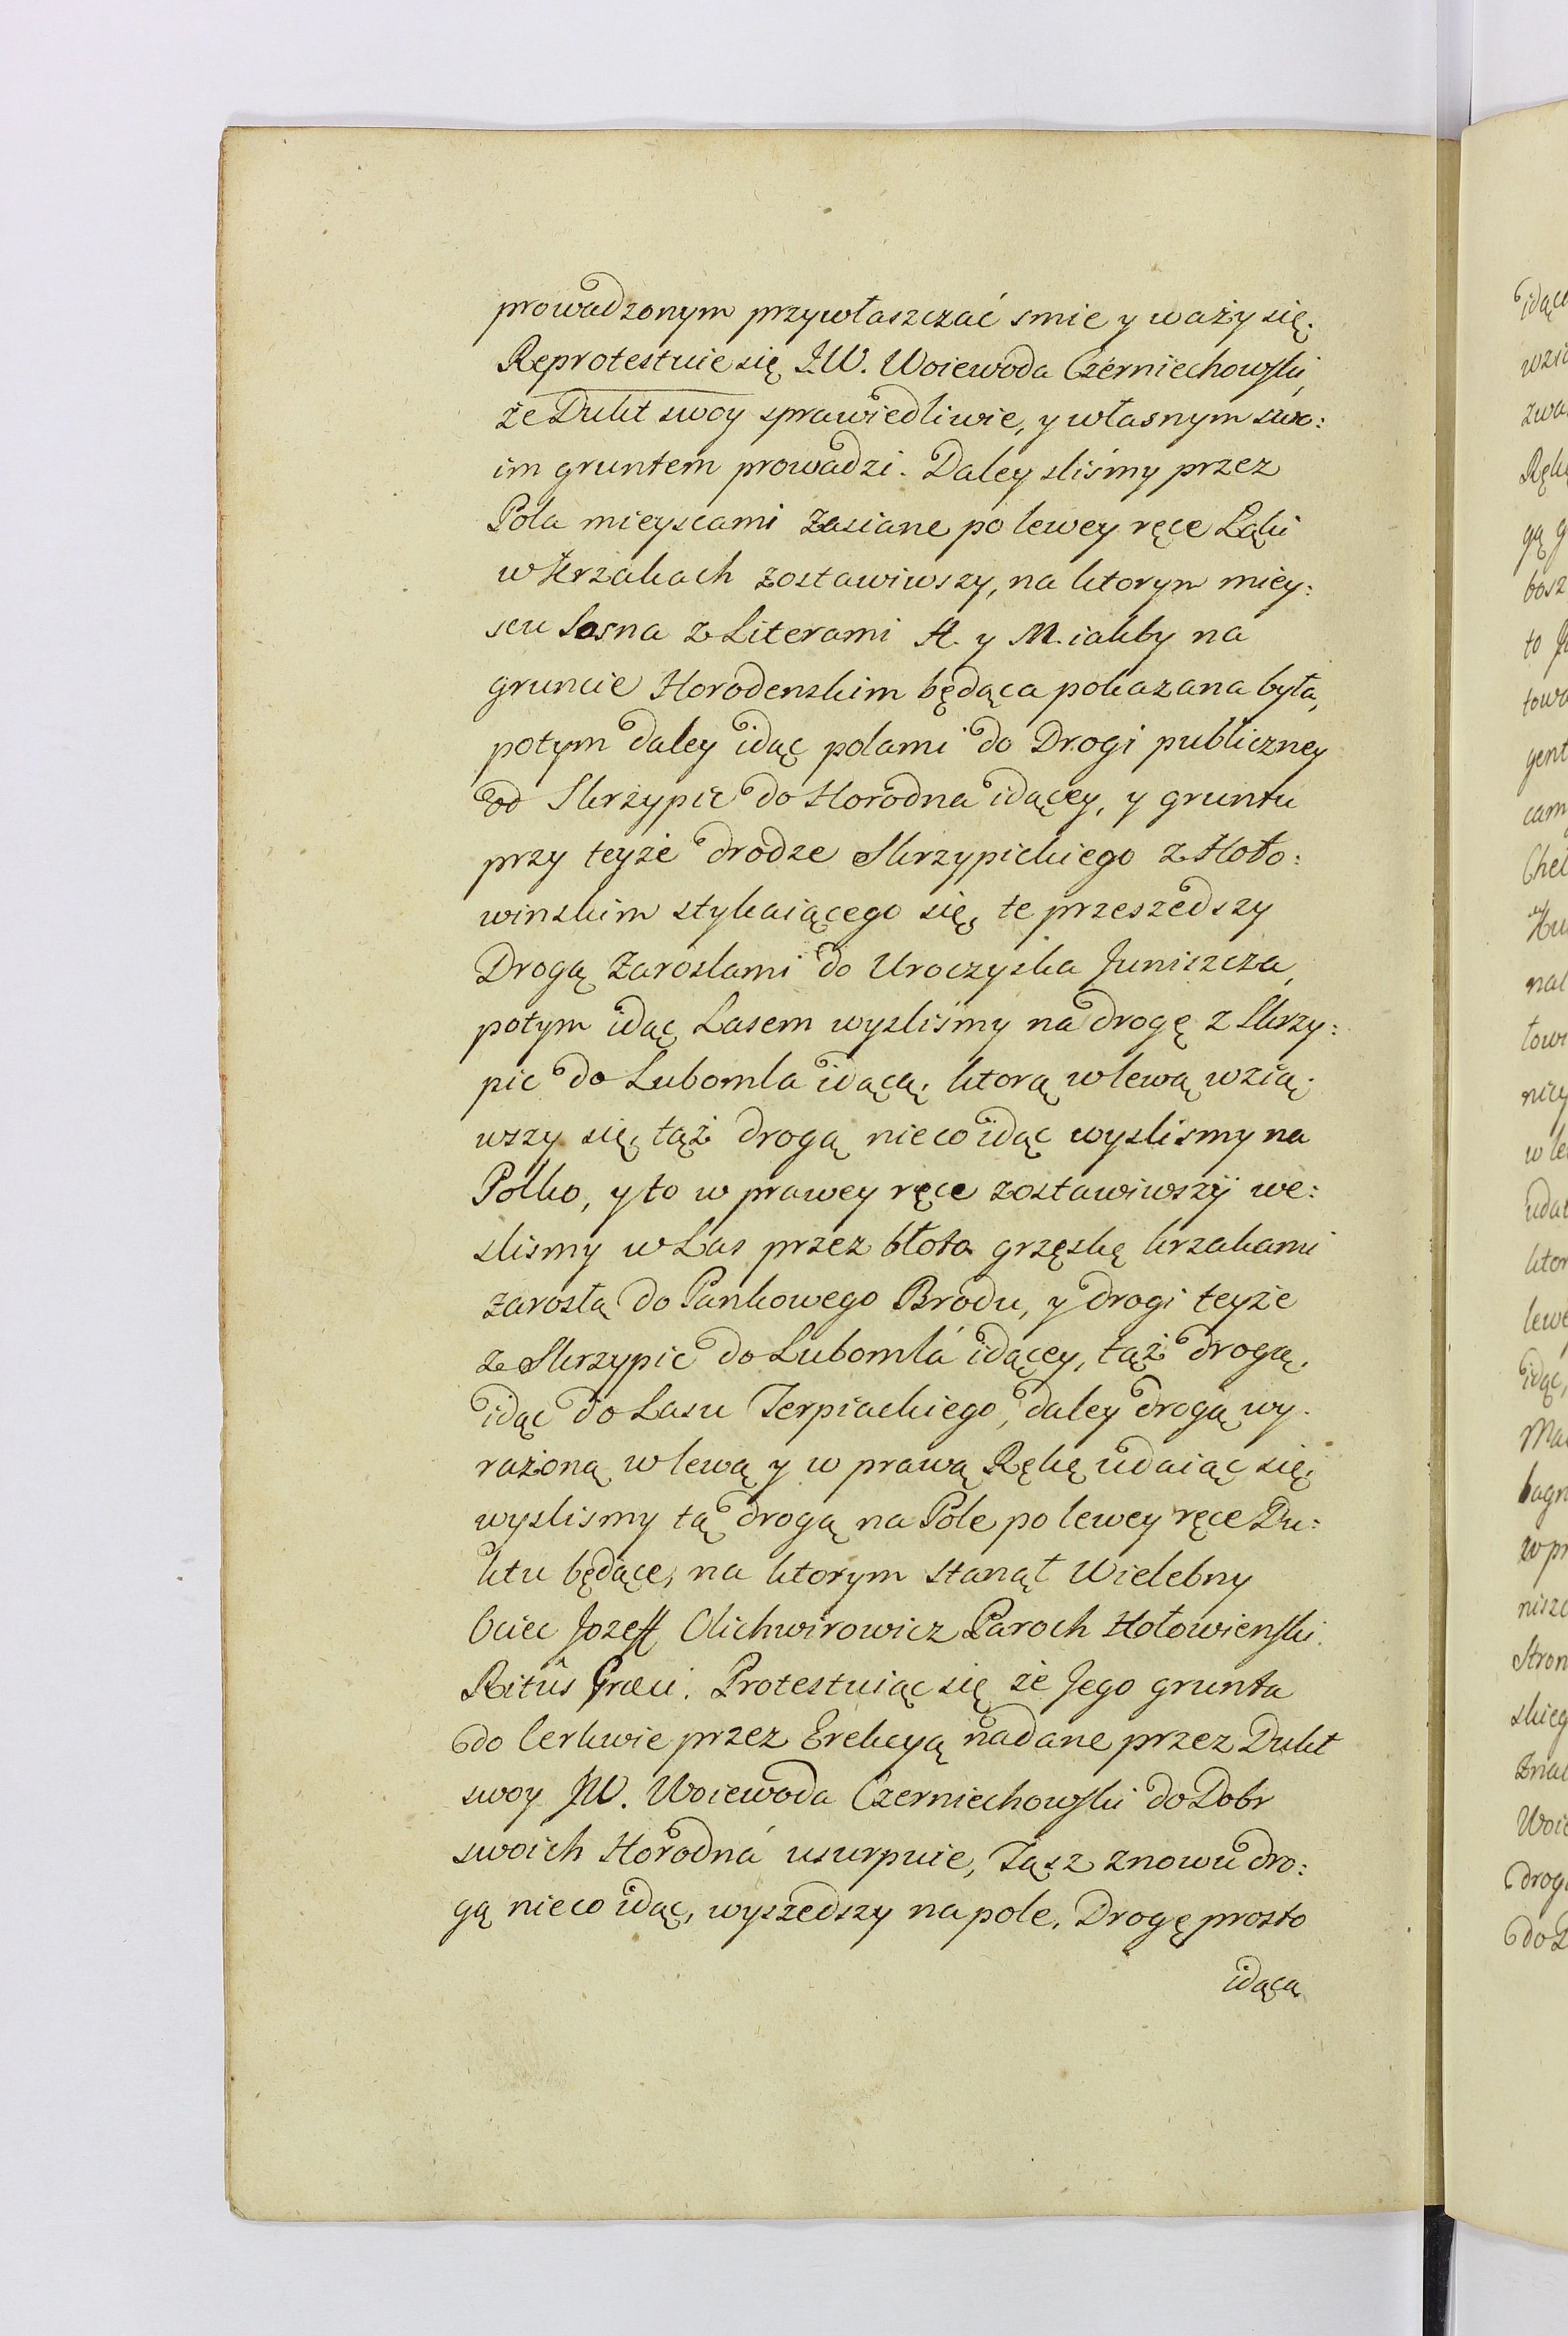 prowadzonym przywłaszczać smie y waży się.
Reprotestuie się JW. Woiewoda Czerniechowski,
że Dukt swoy sprawiedliwie, y własnym swo:
im gruntem prowadzi. Daley sliśmy przez
Pola mieyscami zasiane po lewey ręce Łąki
w krzakach zostawiwszy, na ktorym miey:
scu Sosna z Literami H. y M. iakby na
gruncie Horodenskim będąca pokazana była,
potym daley idąc polami do Drogi publiczney
od Skrzypic do Horodna idącey, y gruntu
przy teyże drodze Skrzypickiego z Hoło:
winskim stykaiącego się, te przeszedszy
Drogą zaroslami do Uroczyska Juniszcza,
potym idąc Lasem wysliśmy na drogę z Skrzy:
pic do Lubomla idącą, ktorą w lewą wzią.
wszy się, tąż drogą nieco idąc wyslismy na
Polko, y to w prawey ręce zostawiwszÿ we:
slismy w Las przez błota grzęskę krzakami
zarosłą do Pankowego Brodu, y drogi teyże
z Skrzypic do Lubomla idącey, tąż drogą,
idąc do Lasu Terpiackiego, daley drogą wy.
rażoną w lewą y w prawą Rękę udaiąc się,
wyslismy tą drogą na Pole po lewey ręce Du:
ktu będące, na ktorym stanął Wielebny
Ociec Jozeff Olichwirowicz Paroch Hołowienski
Ritûs Græci. Protestuiąc się że Jego grunta
do Cerkwie przez Erekcyą nadane przez Dukt
swoy JW. Woiewoda Czerniechowski do Dobr
swoich Horodná usurpuie, Tąsz znowu dro:
gą nieco idąc, wyszedszy na pole. Drogę prosto
idącą